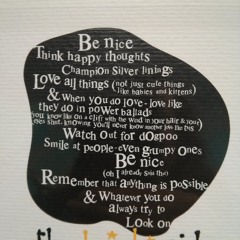 Be nice
Think happy thoughts
Champion Silver linings
Love all things (not just cute things
like babies and kittens)
& When you do love-love like
they do in power Ballads
you know like on a cliff with the wind in your hair & your
eyes shut, knowing you'll never know another love like this
Watch out for dogpoo
Smile at people-even grumpy ones
Be nice
(oh I already said this)
Remember that anything is possible
& Whatever you do
always try to
Look on